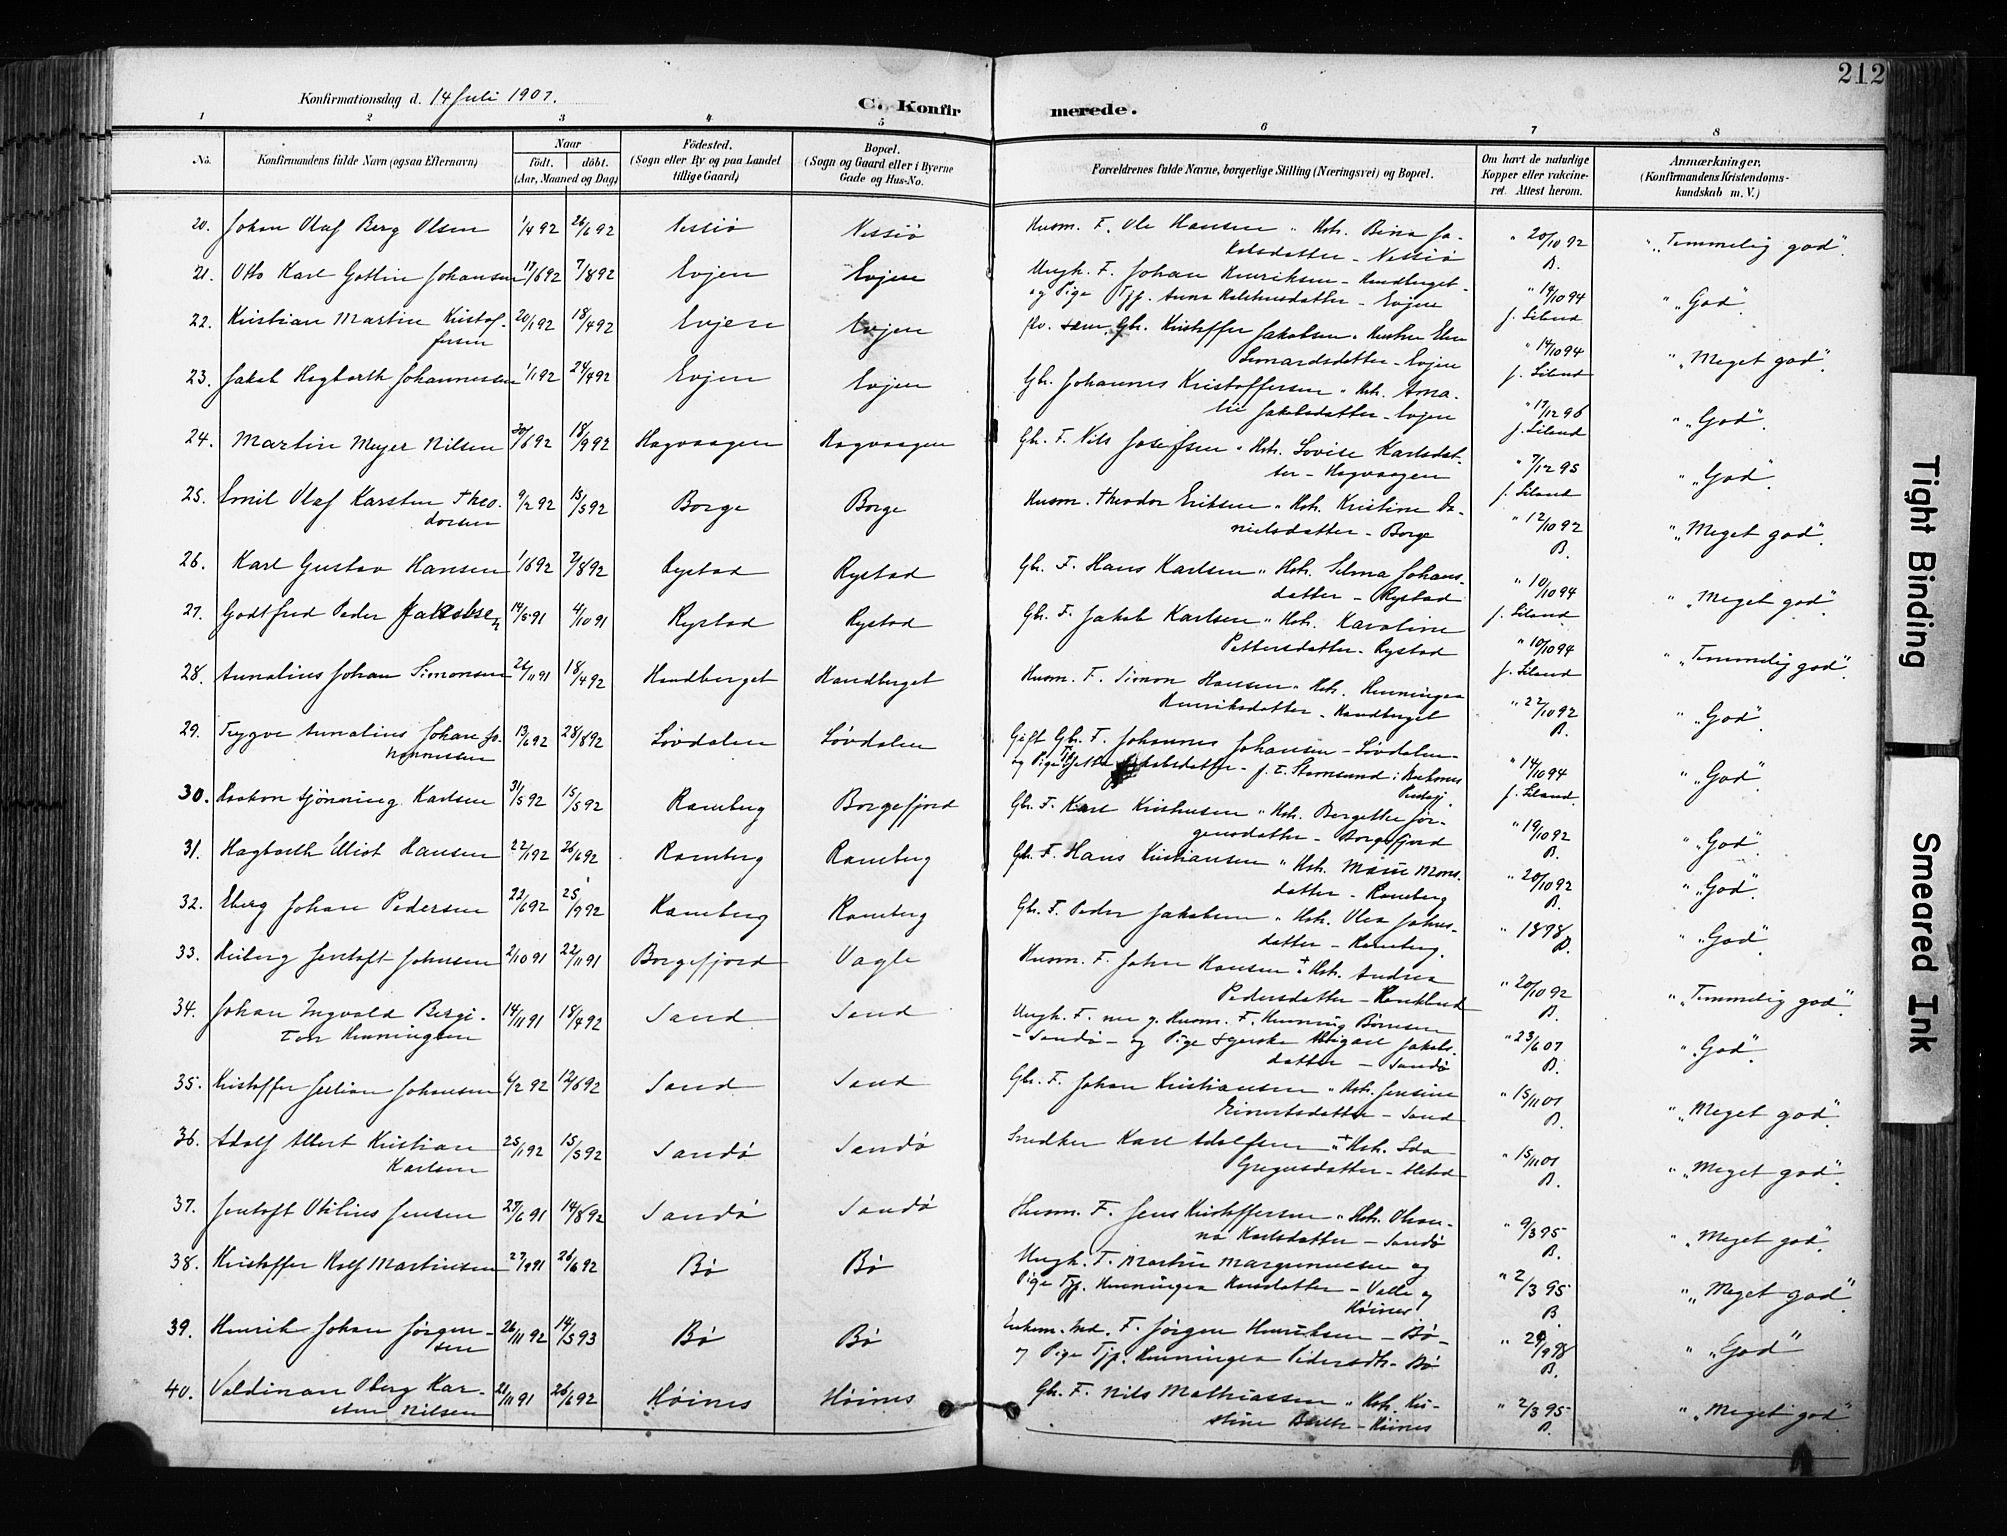 212
Konfirmationsdag d. 14 Juli 1907.
C. Konfirmerede.
1 2 3 4 5 6 7 8
No. Konfirmandens fulde Navn (ogsaa Efternavn) Naar födt. döbt. (Aar, Maaned og Dag) Födested. (Sogn eller By og paa Landet tillige Gaard) Bopæl. (Sogn og Gaard eller i Byerne Gade og Hus-No. Forældrenes fulde Navne, borgerlige Stilling (Næringsvei) og Bopæl. Om havt de naturlige Kopper eller vakcineret. Attest herom. Anmærkninger, (Konfirmandens Kristendomskundskab m. V.)
20. Johan Olaf Berg Olsen 1/4 92 26/6 92 Nessiö Nessiö Husm. F. Ole Hansen " Hstr. Bina Ja-
kobsdatter - Nessiö " 20/10 92 B. " "Temmelig god".
21. Otto Karl Gottin Johansen 17/6 92 7/8 92 Evjen Evjen Ungk. F. Johan Henriksen - Handberget -
og Pige Tjp. Anna - Evjen " 14/10 94 f. Liland " "God".
22. Kristian Martin Kristof-
fersen 20/1 92 18/4 92 Evjen Evjen Gbr. Kristoffer Jakobsen
- Evjen " 14/10 94 f. Liland " "Meget god".
23. Jakob Hagbarth Johannessen 1/1 92 24/4 92 Evjen Evjen Gbr. Johannes Kristoffersen " Hstr. Ama-
lie Jakobsdatter - Evjen " 17/12 96 f. Liland " "God".
24. Martin Meyer Nilsen 30/6 92 18/9 92 Hagvaagen Hagvaagen Gbr. F. Nils Josefsen " Hstr. Lovise Karlsdat-
ter - Hagvaagen " 7/12 95 f. Liland " "God".
25. Emil Olaf Karsten Theo-
dorsen 9/2 92 15/5 92 Borge Borge Husm. Theodor Eriksen " Hstr. Kristine Da-
nielsdatter - Borge " 12/10 92 B. " "Meget god".
26. Karl Gustav Hansen 1/6 92 7/8 92 Rystad Rystad Gbr. F. Hans Karlsen " Hstr. Selma Johans-
datter - Rystad " 10/10 94 f. Liland " "Meget god".
27. Godtfred Peder Jakobsen 14/5 91 4/10 91 Rystad Rystad Gbr. F. Jakob Karlsen " Hstr. Karoline
Pettersdatter - Rystad " 10/10 94 f. Liland " "Temmelig god".
28. Annalius Johan Simonsen 18/4 92 Handberget Handberget Husm. F. Simon Hansen " Hstr. Henningea
Henriksdatter - Handberget " 22/10 92 B. " "God".
29. Trygve Annalius Johan Jo-
hannessen 13/6 92 28/8 92 Lövdalen Lövdalen Gift Gbr. F. Johannes Johansen - Lövdalen -
og Pige f. t. Stamsund i Buksnes
Prstgj. " 14/10 94 f. Liland. " "God".
30. Haakon Hjönning Karlsen 31/5 92 15/5 92 Ramberg Borgefjord Gbr. F. Karl Kristiansen " Hstr. Bergette Jör-
gensdatter - Borgefjord " 19/10 92 B. " "God".
31. Hagbarth Elliot Hansen 22/1 92 26/6 92 Ramberg Ramberg Gbr. F. Hans Kristiansen " Hstr. Marie Mons-
datter - Ramberg " 20/10 92 B. " "God".
32. Eberg Johan Pedersen 22/6 92 25/9 92 Ramberg Ramberg Gbr. F. Peder Jakobsen " Hstr. Olea Johns-
datter - Ramberg. " 1898 B. " "God".
33. Reiberg Jentoft Johnsen 2/10 91 22/11 91 Borgefjord Vagle Husm. F. John Hansen + Hstr. Andrea
Pedersdatter - " 20/10 92 B. " "Temmelig god".
34. Johan Ingvald Bergi-
ton Henningsen 14/11 91 18/4 92 Sand Sand Ungk. F. nu g. Husm. F. Henning
- Sandö - og Pige Jakobs-
datter - Sandö " 23/6 07 B. " "God".
35. Kristoffer Julian Johansen 6/2 92 12/6 92 Sand Sand Gbr. F. Johan Kristiansen " Hstr. Jensine
Einertsdatter - Sand " 15/11 01 B. " "Meget god".
36. Adolf Albert Kristian
Karlsen 25/1 92 15/5 92 Sandö Sandö Snedker Karl Adolfsen + Hstr. Ida
Gregusdatter - " 15/11 01 B. " "Meget god".
37. Jentoft Otilius Jensen 27/6 91 14/8 92 Sandö Sandö Husm. F. Jens Kristoffersen " Hstr. Olean-
na Karlsdatter - Sandö " 9/3 95 B. " "Meget god".
38. Kristoffer Rolf Martinsen 27/9 91 26/6 92 Bö Bö Ungk. F. Martin og
Pige Tjp. Henningea Hansdatter - Valle og
Höines " 2/3 95 B. " "Meget god".
39. Henrik Johan Jörgen-
sen 26/11 92 14/5 93 Bö Bö Enkem. Ind. F. Jörgen Henriksen - Bö -
og Pige Tjp. Henningea Pedersdtr. - Bö " 29/9 98 B. " "God"
40. Valdimar Oberg Kar-
sten Nilsen 21/11 91 26/6 92 Höines Höines Gbr. F. Nils Mathiassen " Hstr. Kri-
stine - Höines " 2/3 95 B. " "Meget god".
Tight Binding
Smeared Ink